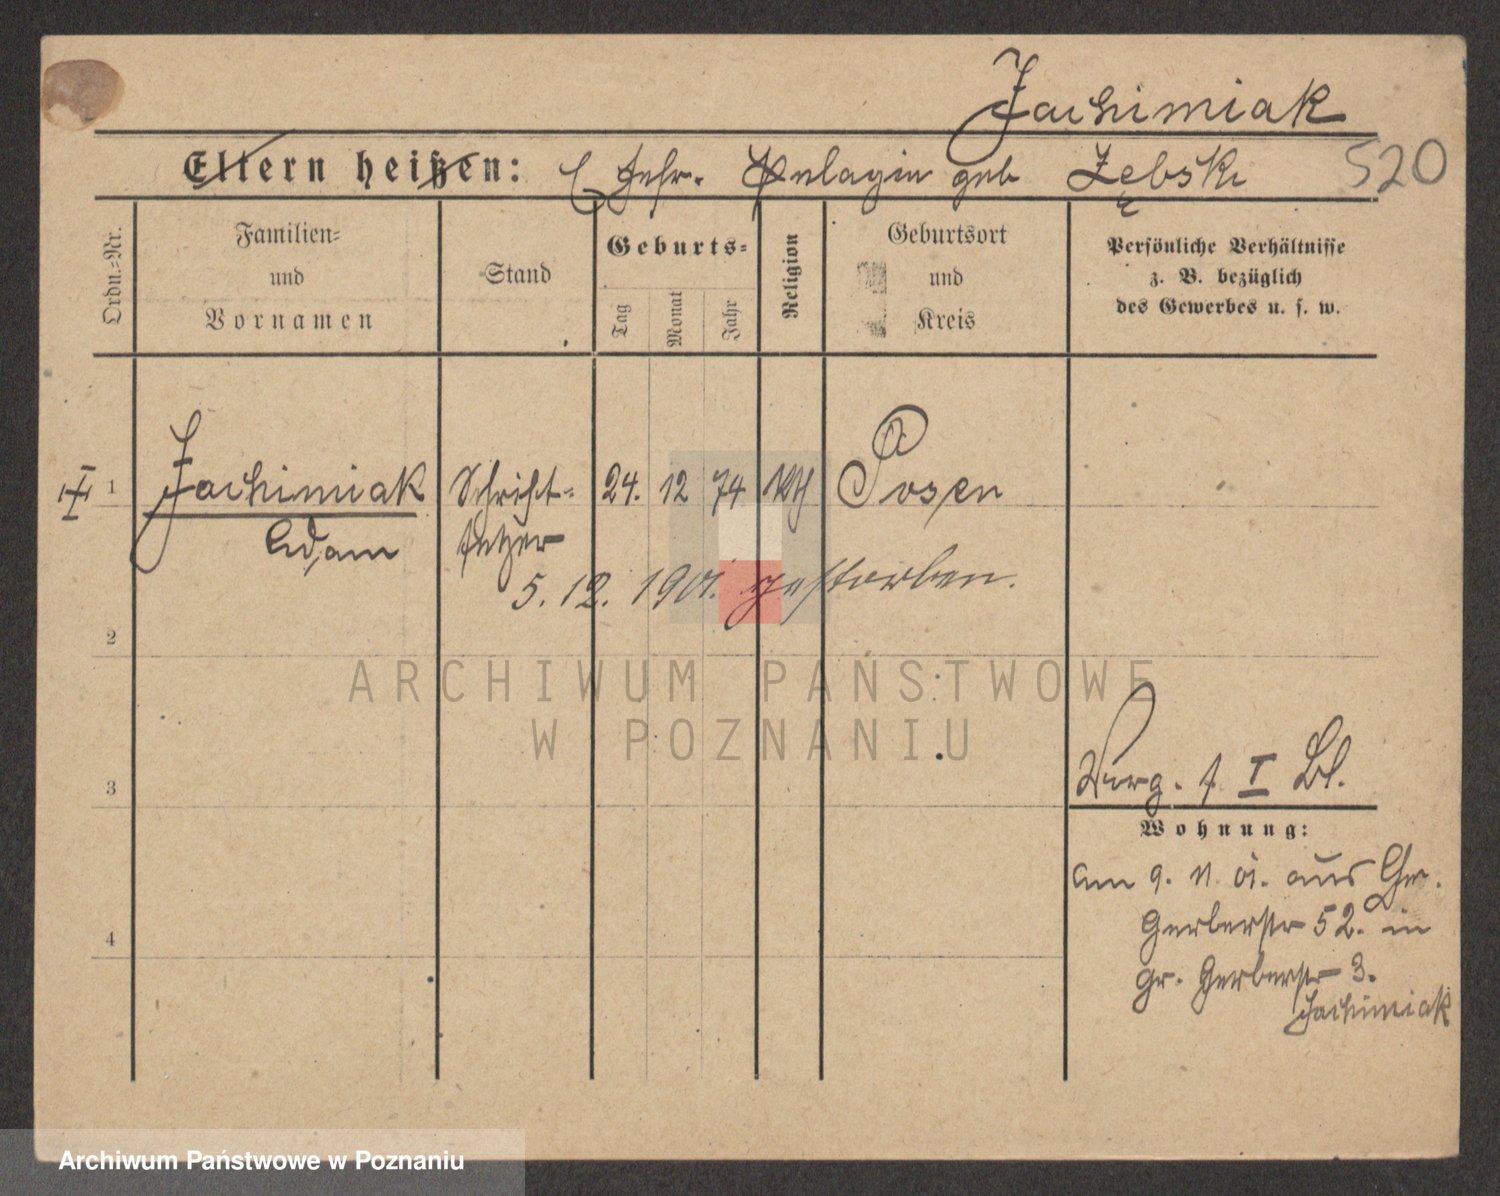 Jachimiak
Eltern heißen: Ehefr. Pelagia geb Zębski
520
Ordn.-Nr.
Familien-
und
Vornamen
Stand
Geburts-
Tag
Monat
Jahr
Religion
Geburtsort
und
Kreis
Persönliche Verhältnisse
z. B. bezüglich
des Gewerbes u. s. w.
1 Jachimiak Schrift- 24. 12 74 kth Posen
Adam setzer
5. 12. 1901. gestorben.
2
ARCHIWUM PAŃSTWOWE
W POZNANIU
3
I Bl.
Wohnung:
am 9. 11 01. aus Gr.
Gerberstr 52. in
4
gr. Gerberstr 3.
Jachimiak
Archiwum Państwowe w Poznaniu